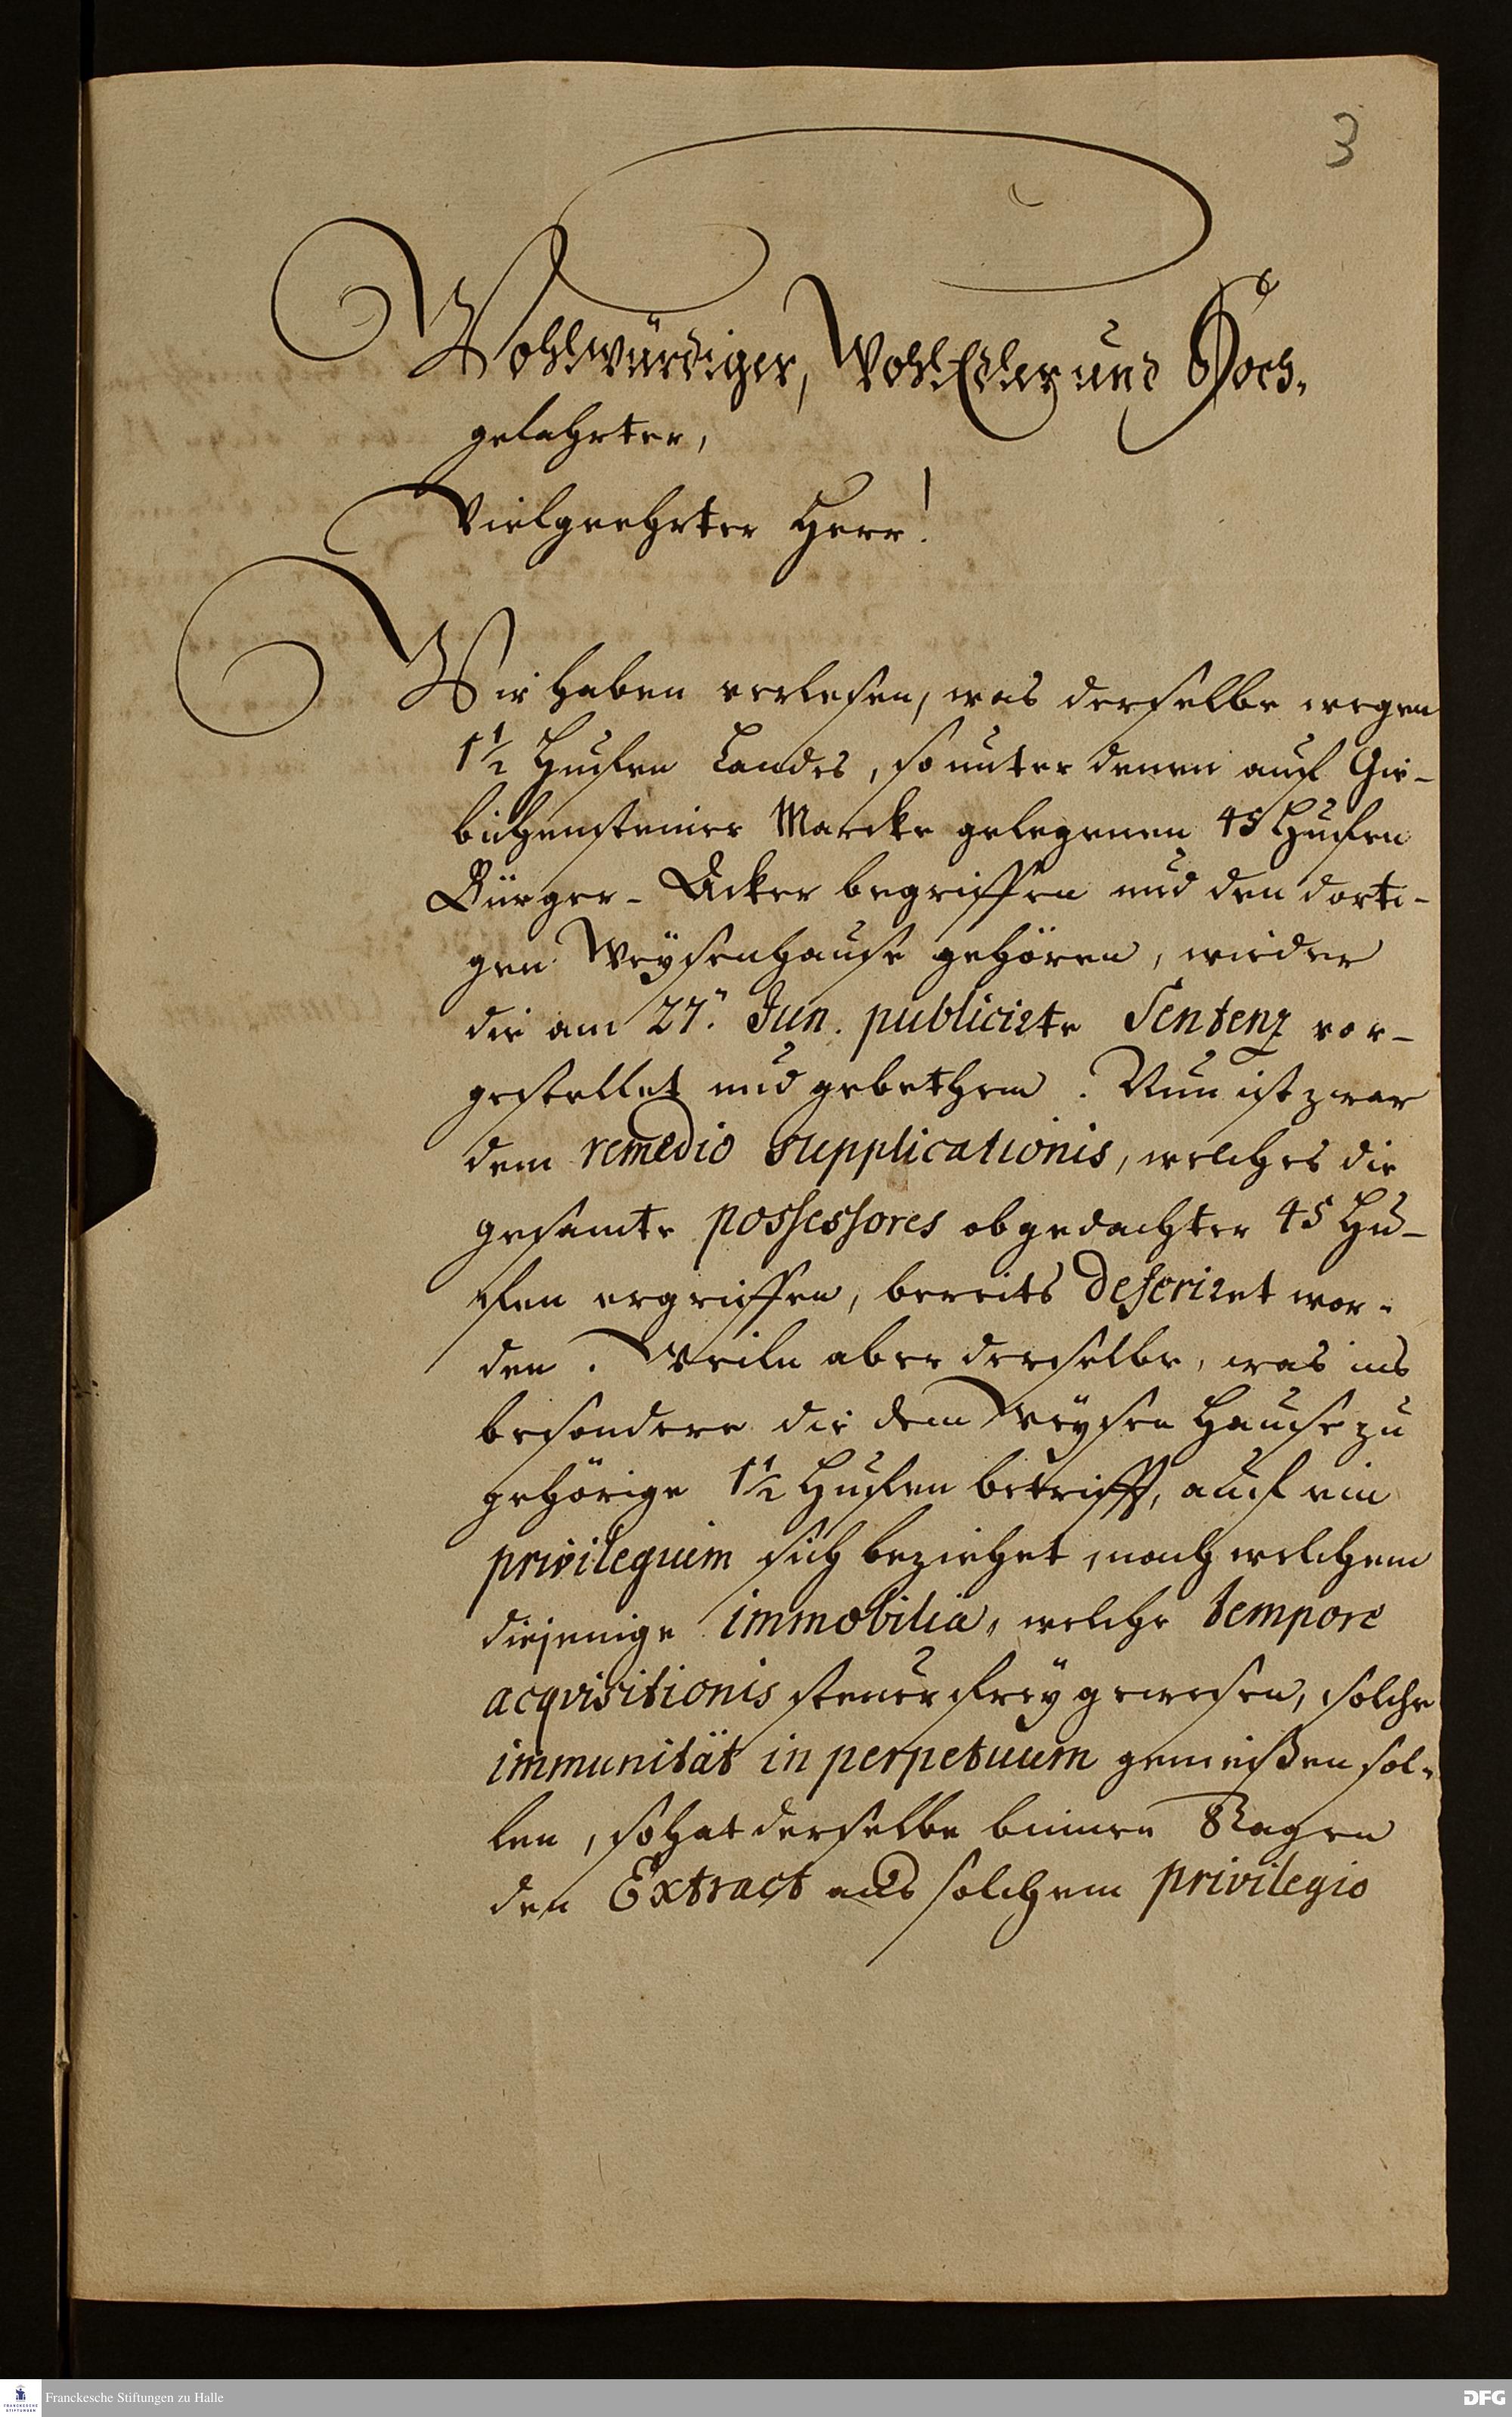 3
Wohlwürdiger, WohlEdler und Hoch-
gelahrter,
Vielgeehrter Herr!
Wir haben verlesen, was derselbe wegen
1½ Hufen Landes, so unter denen auf Gie-
bichensteiner Marcke gelegenen 45 Hufen
Bürger-Acker begriffen und den dorti-
gen Weysenhause gehören, wieder
die am 27. Jun. publicirte Sentenz vor-
gestellet und gebethen. Nun ist zwar
dem remedio supplicationis, welches die
gesamte possessores obgedachter 45 Hu-
fen ergriffen, bereits deferiret wor-
den. Weiln aber derselbe, was ins
besondere die dem Weysen Hause zu
gehörige 1½ Hufen betrifft, auf ein
privilegium sich beziehet, nach welchem
diejenige immobilia, welche tempore
acqvisitionis steuerfrey gewesen, solche
immunität in perpetuum genießen sol-
len, so hat derselbe binnen 8 Tagen
den Extract aus solchem privilegio
Franckesche Stiftungen zu Halle
DFG